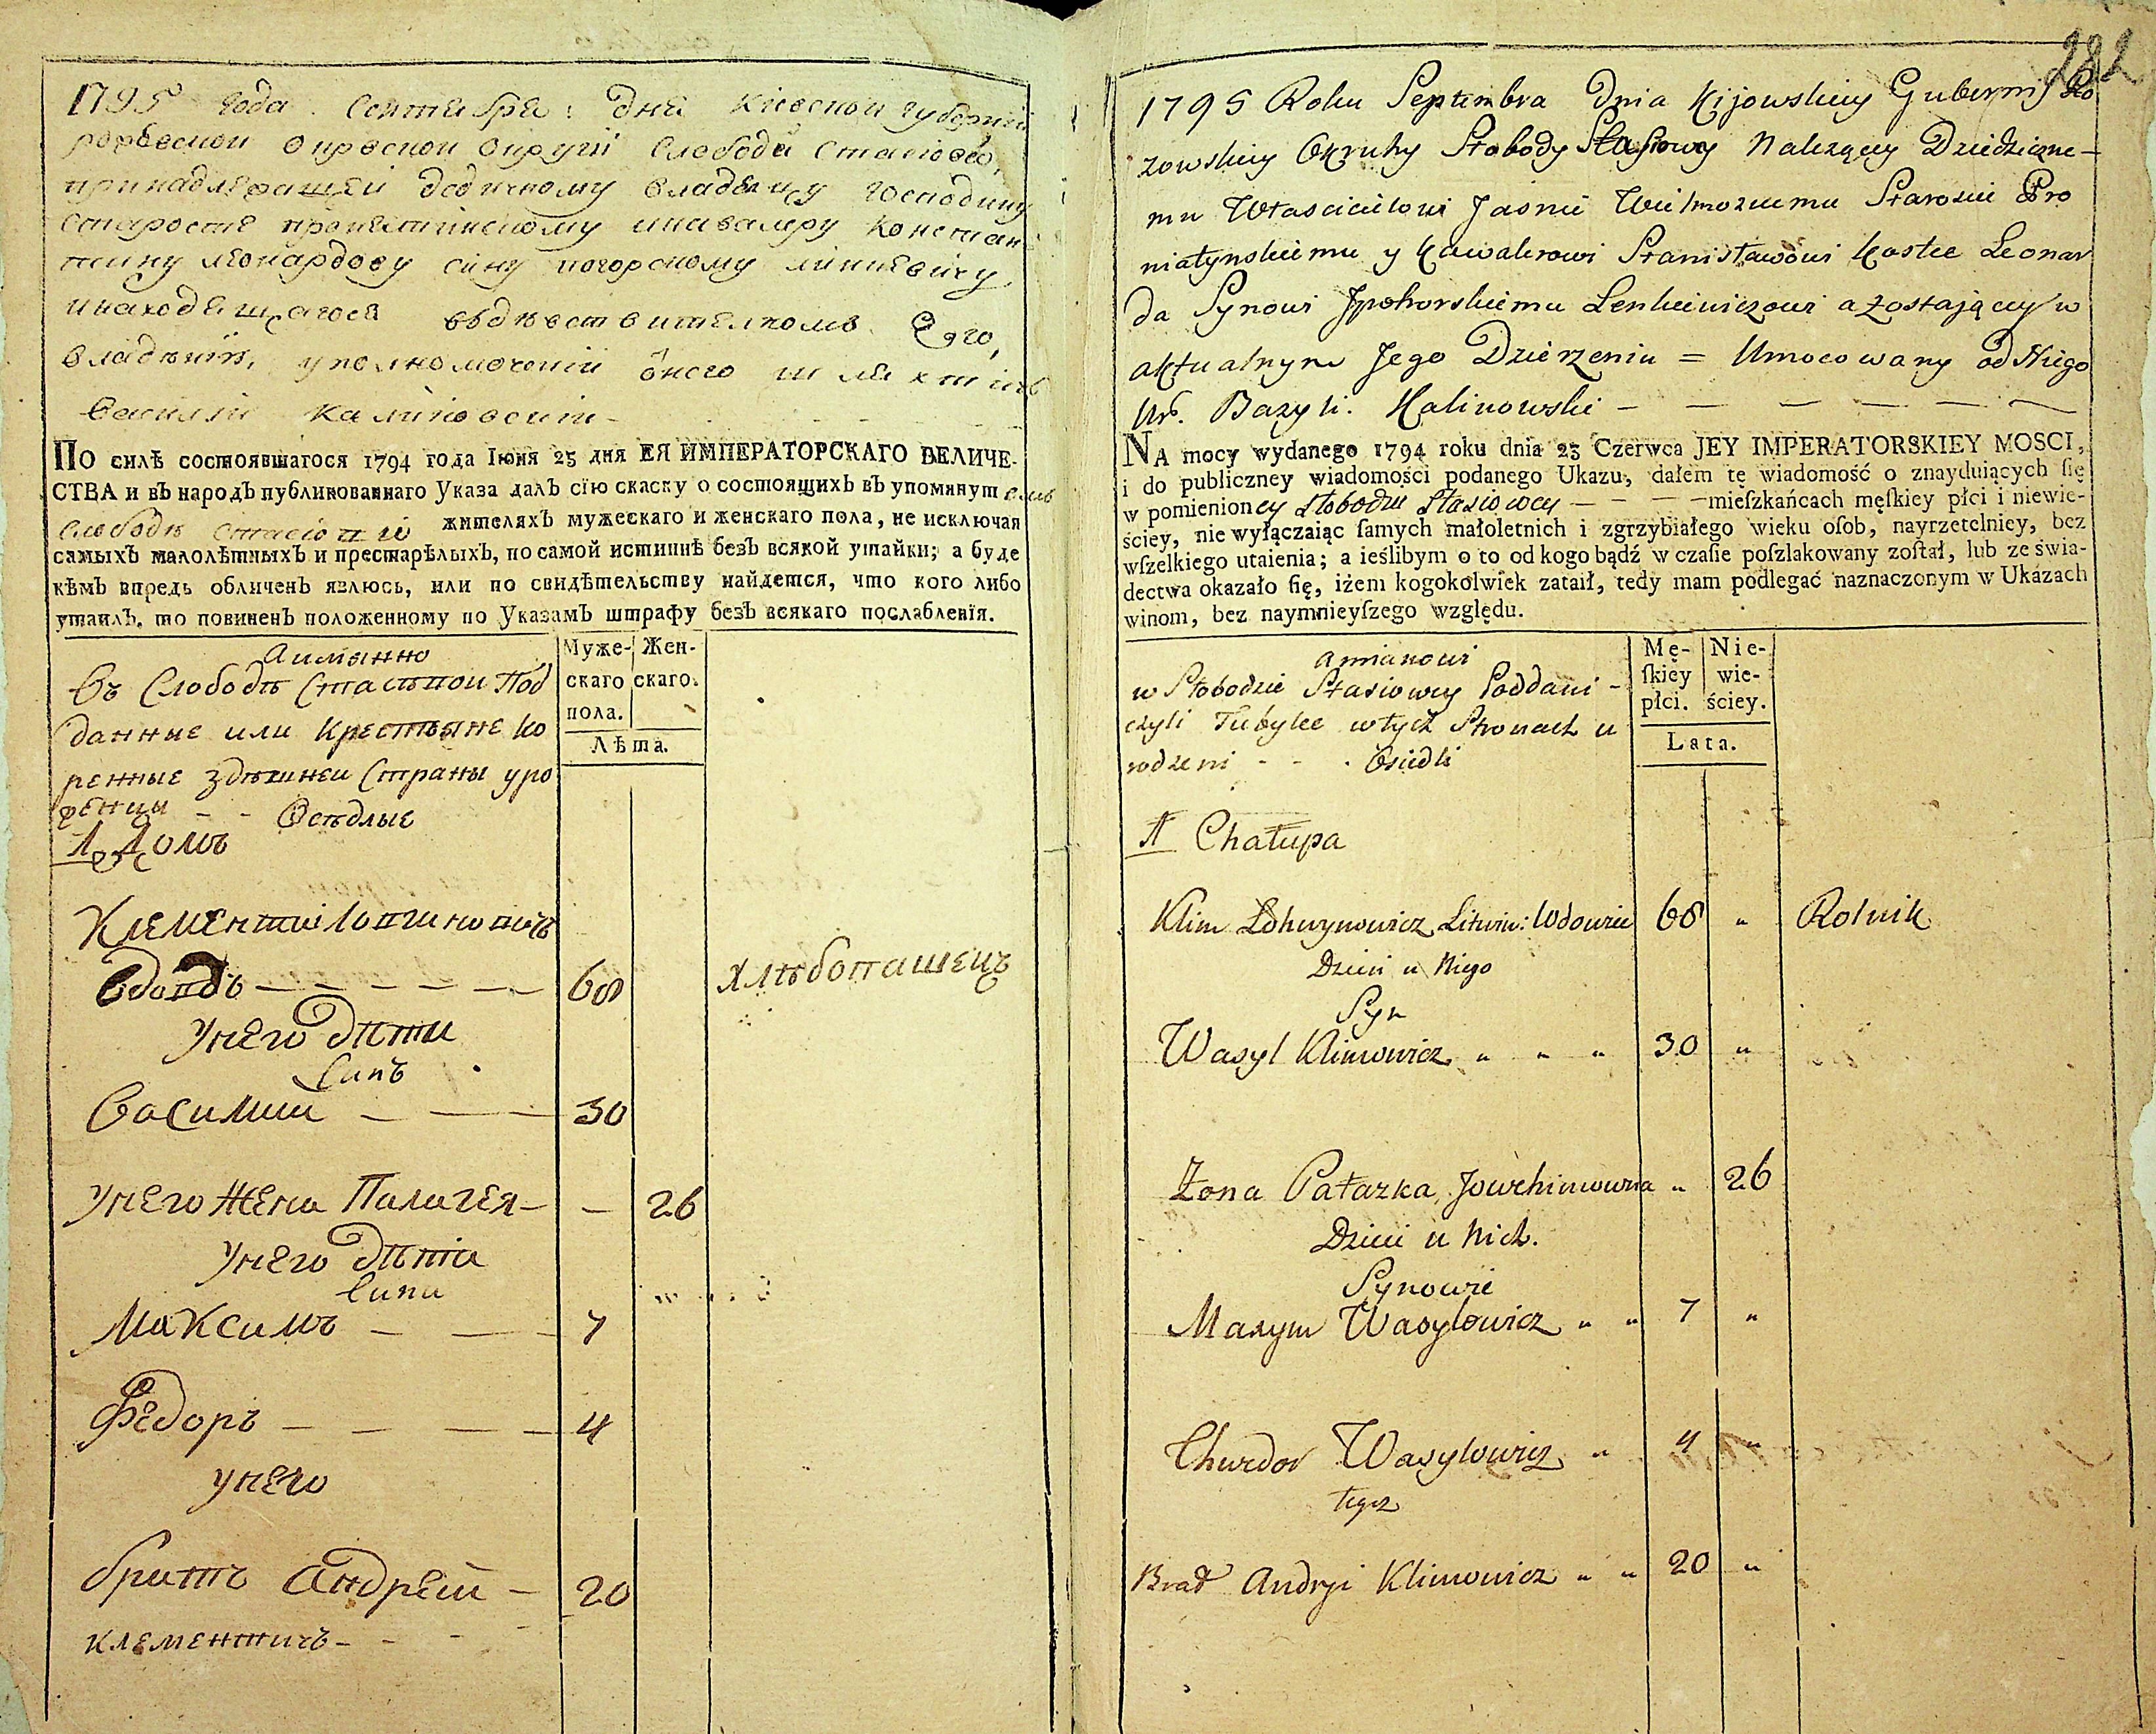 1795 года Сентября: дня Киевской губернии
округии Слободи Стасіово,
принадлежащей дедичному владелцу господину
Старосте кавалеру Констан
тину Леонардову сину погорскому минкевичу
инаходящагося вдействителномъ Его,
владении, уполномоченій оного шляхтичъ
Василій Калиновский
ПО силѣ состоявшагося 1794 года Іюня 25 дня ЕЯ ИМПЕРАТОРСКАГО ВЕЛИЧЕ-
СТВА и въ народъ публикованнаго Указа далъ сїю скаску о состоящихъ въ упомянут
слободѣ жителяхъ мужескаго и женскаго пола, не исключая
самыхъ малолѣтныхъ и престарѣлыхъ, по самой истиннѣ безъ всякой утайки; а буде
кѣмъ впредь обличенъ явлюсь, или по свидѣтельству найдется, что кого либо
утаилъ, то повиненъ положенному по Указамъ штрафу безъ всякаго послабленїя.
Аимянно
Въ Слободѣ Стасѣвой Под
данные или Крестьяне ко
ренные здѣшней Страны уро
женцы - - Осѣдлые
Муже-
скаго
пола.
Жен-
скаго.
Лѣта.
1 Домъ
Клементий Логвиновичъ
Вдовъ — — — — — — 68 хлѣбопашецъ
Унего Дѣти
Синъ
Василий — — — 30
Унего Жена Палагея — — 26
Унего Дѣти
Сини
Максимъ — — — 7
Федоръ — — — — 4
Унего
братъ Андрей — 20
Клементичъ - - - -
222
1795 Roku Septembra Dnia Kijowskiey Gubernij Ro
zowskiey Okruhy Słobody Stasiowey Nalezącey Dziedziczne-
mu Własciicielowi Jasnie Wielmoznemu Staroscie Pro
niatynskiemu y Kawalerowi Stanisławowi Kostce Leonar
da Synowi Jpohorskiemu Lenkiewiczowi a Zostaiącey w
aktualnym Jego Dzierzeniu = Umocowany od Niego
Ur. Bazyli. Kalinowski — — — — — —
NA mocy wydanego 1794 roku dnia 23 Czerwca JEY IMPERATORSKIEY MOSCI,
i do publiczney wiadomości podanego Ukazu, dałem tę wiadomość o znayduiących ſię
w pomienioney Słobodzie Stasiowey — — — —mieſzkańcach męſkiey płci i niewie-
ściey, nie wyłączaiąc ſamych małoletnich i zgrzybiałego wieku oſob, nayrzetelniey, bez
wſzelkiego utaienia; a ieślibym o to od kogo bądź w czaſie poſzlakowany zoſtał, lub ze świa-
dectwa okazało ſię, iżem kogokolwiek zataił, tedy mam podlegać naznaczonym w Ukazach
winom, bez naymnieyſzego względu.
amianowi
w Słobodzie Stasiowey Poddani -
czyli Tubylce wtych Stronach u
rodzeni - - . Osiedli
Mę-
ſkiey
płci.
Nie-
wie-
ściey.
Lata.
1 Chałupa
Klim Łohwynowicz Litwin: Wdowiec 68 " Rolnik
Dzieci u Niego
Syn
Wasyl Klimowicz " " " 30 "
Zona Pałazka Jowchimowna " 26
Dzieci u Nich.
Synowie
Maxym Wasylowicz " " 7 "
Chwedor Wasylowicz " 4 "
tegoz
Brat Andryi Klimowicz " " 20 "